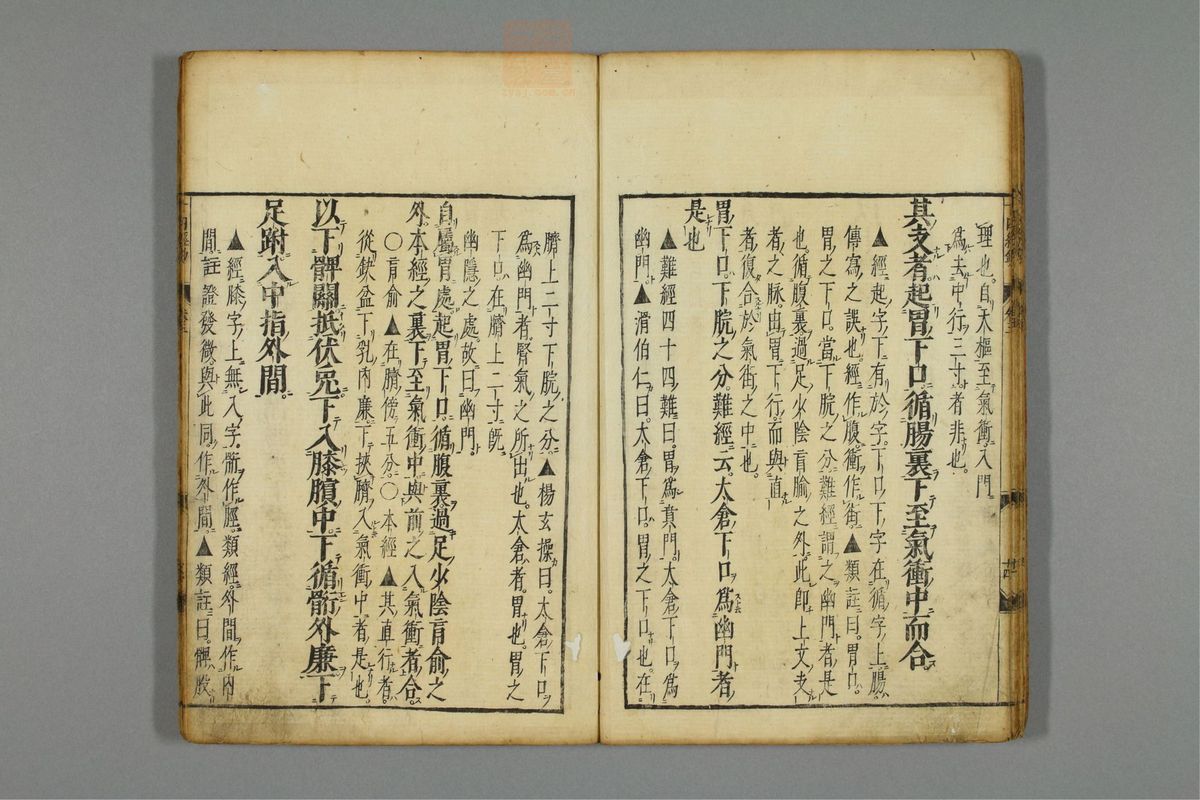 理也。自大樞至氣衝。入門
爲去中行三寸者非也。
其支者起胃下口。循腸裏下至氣衝中而合。
▲經起字下有於字。下口下字在循字上。腸
傳寫之誤也。經作腹。衝作街。▲類註曰。胃口。
胃之下口。當下脘之分。難經謂之幽門者是
也。循腹裏。過足少陰肓腧之外。此即上文支
者之脉。由胃下行。而與直
者復合於氣街之中也。
胃下口。下脘之分。難經云。太倉下口爲幽門者
是也
▲難經四十四難曰。胃爲賁門。太倉下口爲
幽門。▲滑伯仁曰。太倉下口。胃之下口也。在
臍上二寸下脘之分。▲楊玄操曰。太倉下口
爲幽門者。腎氣之所出也。太倉者。胃也。胃之
下口。在臍上二寸。既
幽隱之處。故曰幽門。
自屬胃處起胃下口。循腹裏過足少陰肓俞之
外。本經之裏。下至氣衝中。與前之入氣衝者合。
〇肓俞▲在臍傍五分。〇本經▲其直行者。
從缺盆下乳內廉。下挾臍入氣衝中者是也。
以下髀關抵伏兎下入膝臏中下循䯒外廉下
足跗入中指外間。
▲經膝字上無入字。䯒作脛。類經。外間作內
間。註證發微。與此同。作外間。▲類註曰。髀股